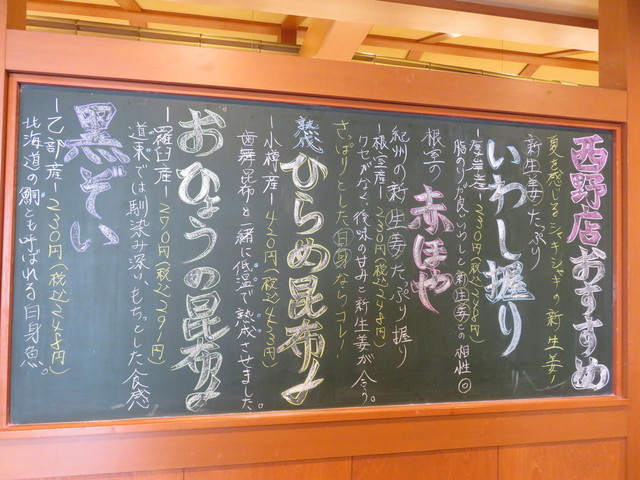 西野店おすすめ
夏を感じるシャキシャキの新生姜!
新生姜たっぷり
いわし握り
ー厚岸産ー
脂のりが良いわしと新生姜との相性◎
根室の
赤ほや
紀州の新生姜たっぷり握り
ー根室産ー230円(税込248円)
クセがなく、後味の甘みと新生姜が合う。
さっぱりとした白身ならコレ!
熟成
ひらめ昆布〆
ー小樽産ー420円(税込453円)
歯舞昆布と一緒に低温で熟成させました。
おひょうの昆布〆
ー羅臼産ー270円(税込291円)
道東では馴染み深い、もちっとした食感
黒ぞい
ー乙部産ー230円(税込248円)
北海道の鯛とも呼ばれる白身魚。